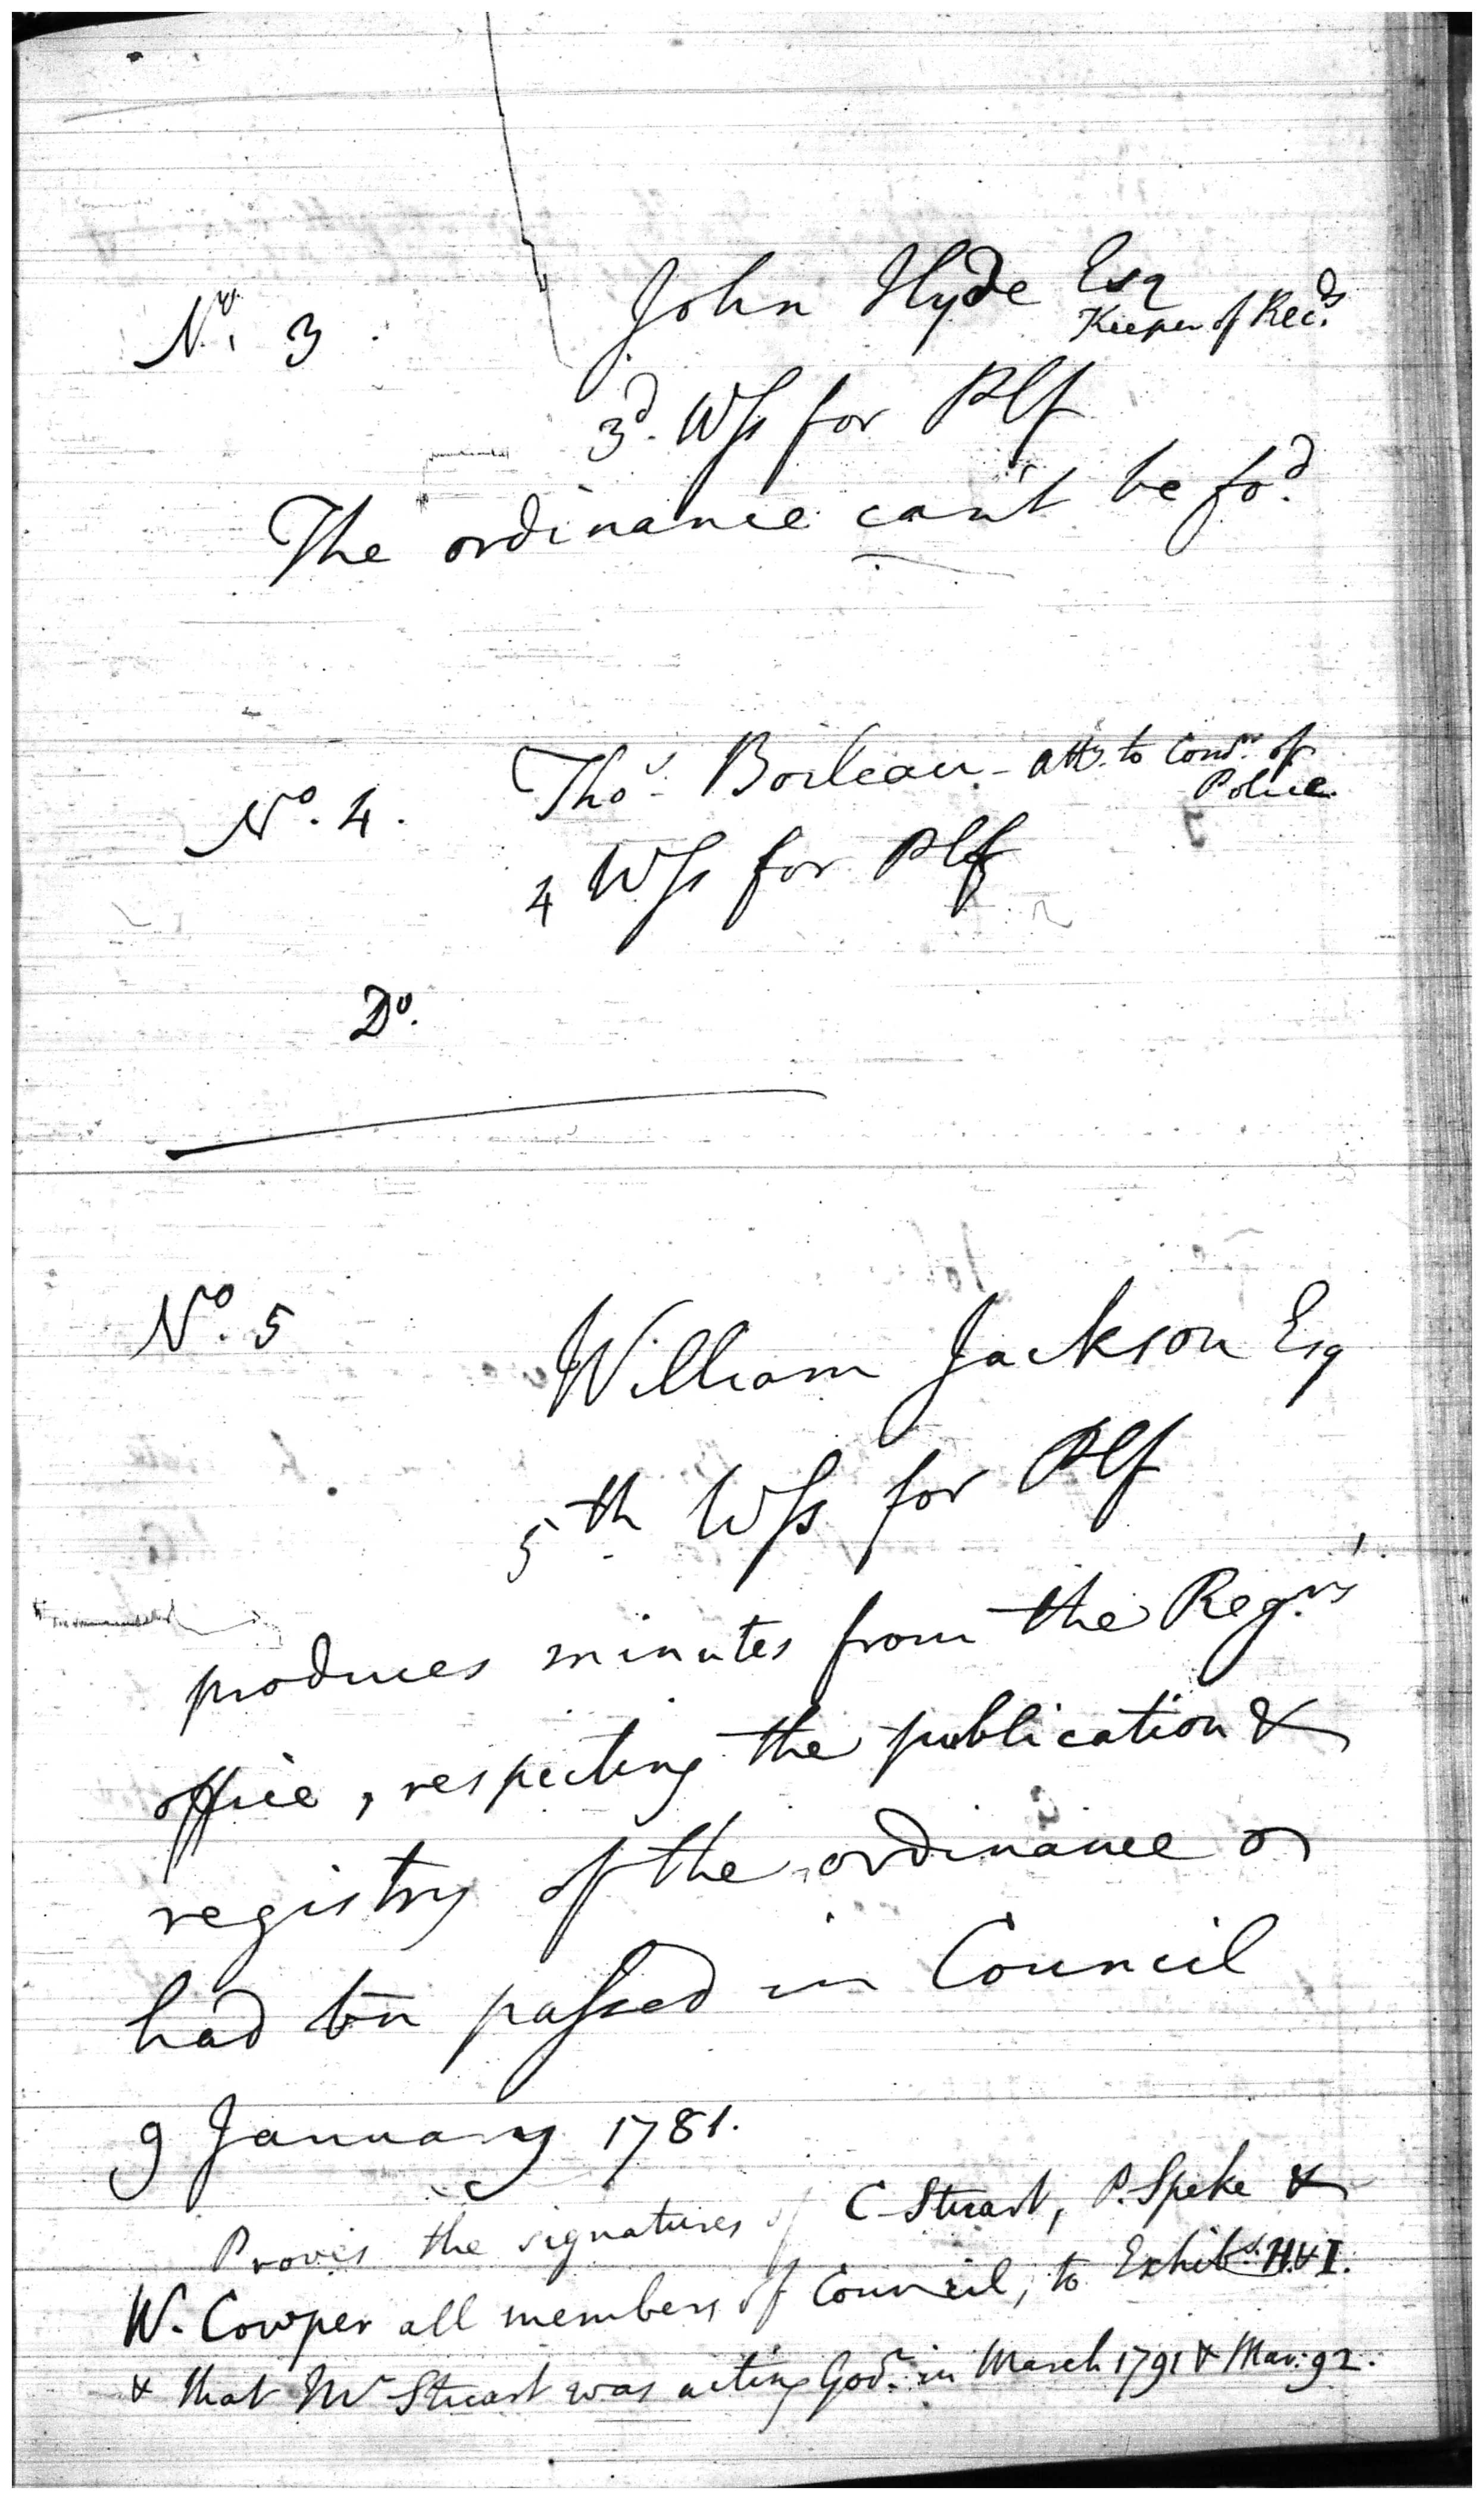 No. 3. John Hyde Esq
Keeper of Recds.
3d. Wss for Plf
The ordinance can't be fod.
No. 4. Thos. Boileau - atty. to Comr. of
Police.
4 Wss for Plf
Do.
No. 5 William Jackson Esq
5th Wss for Plf
produces minutes from the Regrs'
office, respecting the publication &
registry of the ordinance as
had bn passed in Council
9 January 1781.
Proves the signatures of C Stuart, P. Speke &
W. Cowper all members of Council, to Exhibs. H. & I.
& that Mr Stuart was acting Govr. in March 1791 & Mar: 92.